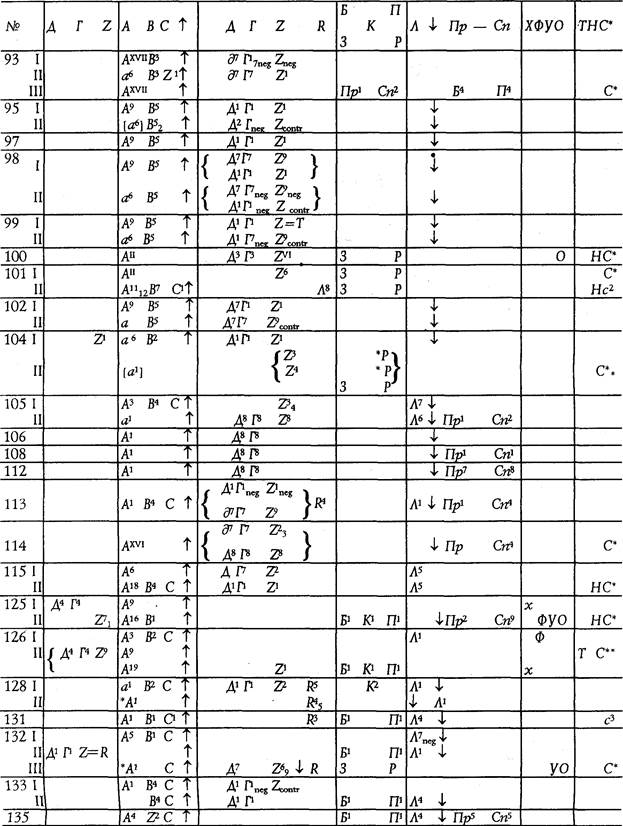 № Д Г Z А В С ↑ Д Г Z R Б П Λ ↓ Пр — Сп ХФУО ТНС*
К
З Р
93 I Aˣⱽᴵᴵ B³ ↑ ∂⁷ Г¹₇neg Zneg
II a⁶ B³ Z¹ ↑ ∂⁷ Г⁷ Z¹
III Aˣⱽᴵᴵ ↑ Пр¹ Сп² Б⁴ П⁴ С*
95 I A⁹ B⁵ ↑ Д¹ Г¹ Z¹ ↓
II [a⁶] B⁵₂ ↑ Д² Гneg Zcontr ↓
97 A⁹ B⁵ ↑ Д¹ Г¹ Z¹ ↓
98 { Д⁷ Г⁷ Z⁹ }
I A⁹ B⁵ ↑ Д¹ Г¹ Z¹ ↓
II a⁶ B⁵ ↑ { Д⁷ Г⁷neg Z⁹neg } ↓
Д¹ Г¹neg Z contr
99 I A⁹ B⁵ ↑ Д¹ Г¹ Z=T ↓
II a⁶ B⁵ ↑ Д¹ Г⁷neg Z⁹contr ↓
100 Aᴵᴵ Д³ Г³ Zⱽᴵ З Р О НС*
101 I Aᴵᴵ Z⁶ З Р С*
II A¹¹₁₂ B⁷ C¹↑ Λ⁸ З Р Нс²
102 I A⁹ B⁵ ↑ Д⁷Г¹ Z¹ ↓
II a B⁵ ↑ Д⁷Г⁷ Z⁹contr ↓
104 I Z¹ a⁶ B² ↑ Д¹Г¹ Z¹ ↓
{ Z³ *Р }
II [a¹] Z⁴ * Р С**
З Р
105 I A³ B⁴ C ↑ Z³₄ Λ⁷ ↓
II a¹ ↑ Д⁸ Г⁸ Z⁸ Λ⁶ ↓ Пр¹ Сп²
106 A¹ ↑ Д⁸ Г⁸ ↓
108 A¹ ↑ Д⁸ Г⁸ ↓ Пр¹ Сп¹
112 A¹ ↑ Д⁸ Г⁸ ↓ Пр⁷ Сп⁸
113 A¹ B⁴ C ↑ { Д¹ Г¹neg Z¹neg } R⁴ Λ¹ ↓ Пр¹ Сп⁴
∂⁷ Г⁷ Z⁹
114 Aˣⱽᴵ ↑ { ∂⁷ Г⁷ Z²₃ } ↓ Пр Сп⁴ С*
Д⁸ Г⁸ Z⁸
115 I A⁶ ↑ Д Г⁷ Z² Λ⁵
II A¹⁸ B⁴ C ↑ Д¹Г¹ Z¹ Λ⁵ НС*
125 I Д⁴ Г⁴ A⁹ ↑ х
II Z⁷₁ A¹⁶ B¹ ↑ Б¹ К¹ П¹ ↓Пр² Сп⁹ ФУО НС*
126 I A³ B² C ↑ Λ¹ Ф
II { Д⁴ Г⁴ Z⁹ A⁹ ↑ Т С**
A¹⁹ Z¹ Б¹ К¹ П¹ х
128 I a¹ B² C ↑ Д¹ Г¹ Z² R⁵ К² Λ¹ ↓
II *A¹ ↑ R⁴₅ ↓ Λ¹
131 A¹ B¹ C¹ ↑ R³ Б¹ П¹ Λ⁴ ↓ с³
132 I A⁵ B¹ C ↑ Λ⁷neg ↓
II Д¹ Г¹ Z=R ↑ Б¹ П¹ Λ¹ ↓
III *A¹ C ↑ Д⁷ Z⁶₉ ↓ R З Р УО С*
133 I A¹ B⁴ C ↑ Д¹ Г¹neg Zcontr
II B⁴ C ↑ Д¹ Г¹ Б¹ П¹ Λ⁴ ↓
135 A⁴ Z² C ↑ Б¹ П¹ Λ⁴ ↓ Пр⁵ Сп⁵